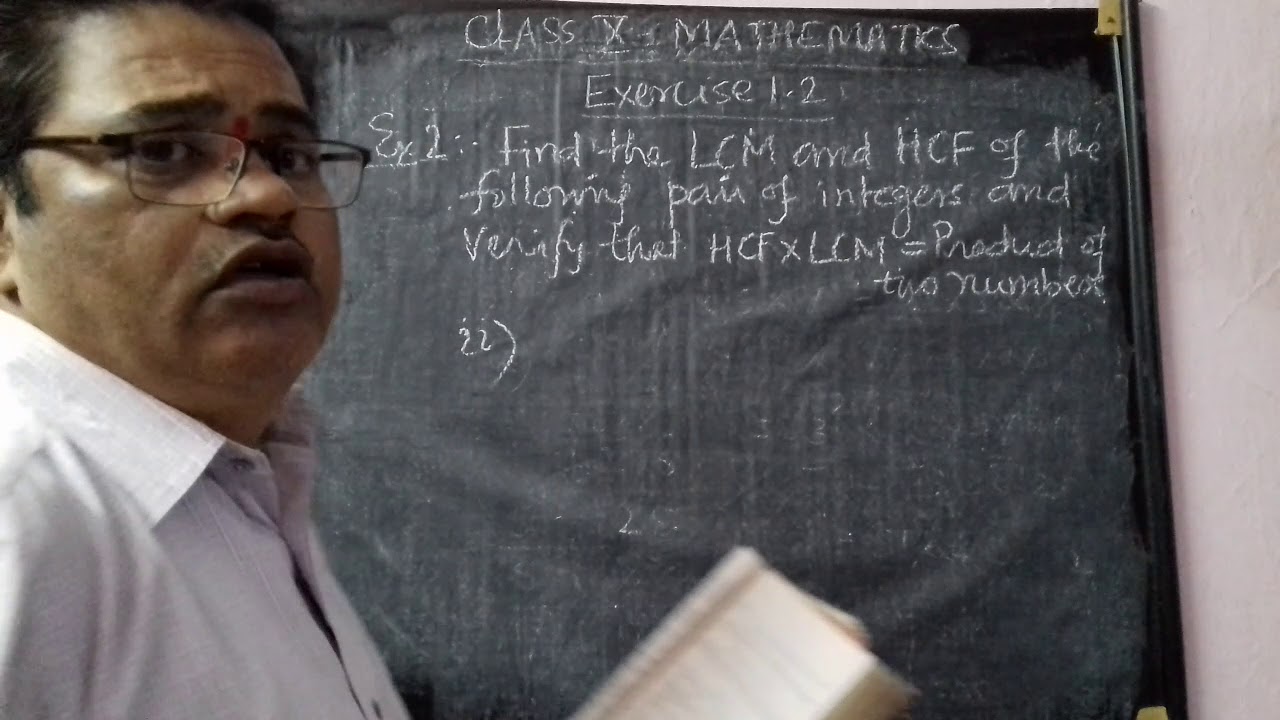 CLASS X : MATHEMATICS
Exercise 1.2
Ex 2:- Find the LCM and HCF of the
following pair of integers and
Verify that HCF X LCM = Product of
two numbers
ii)